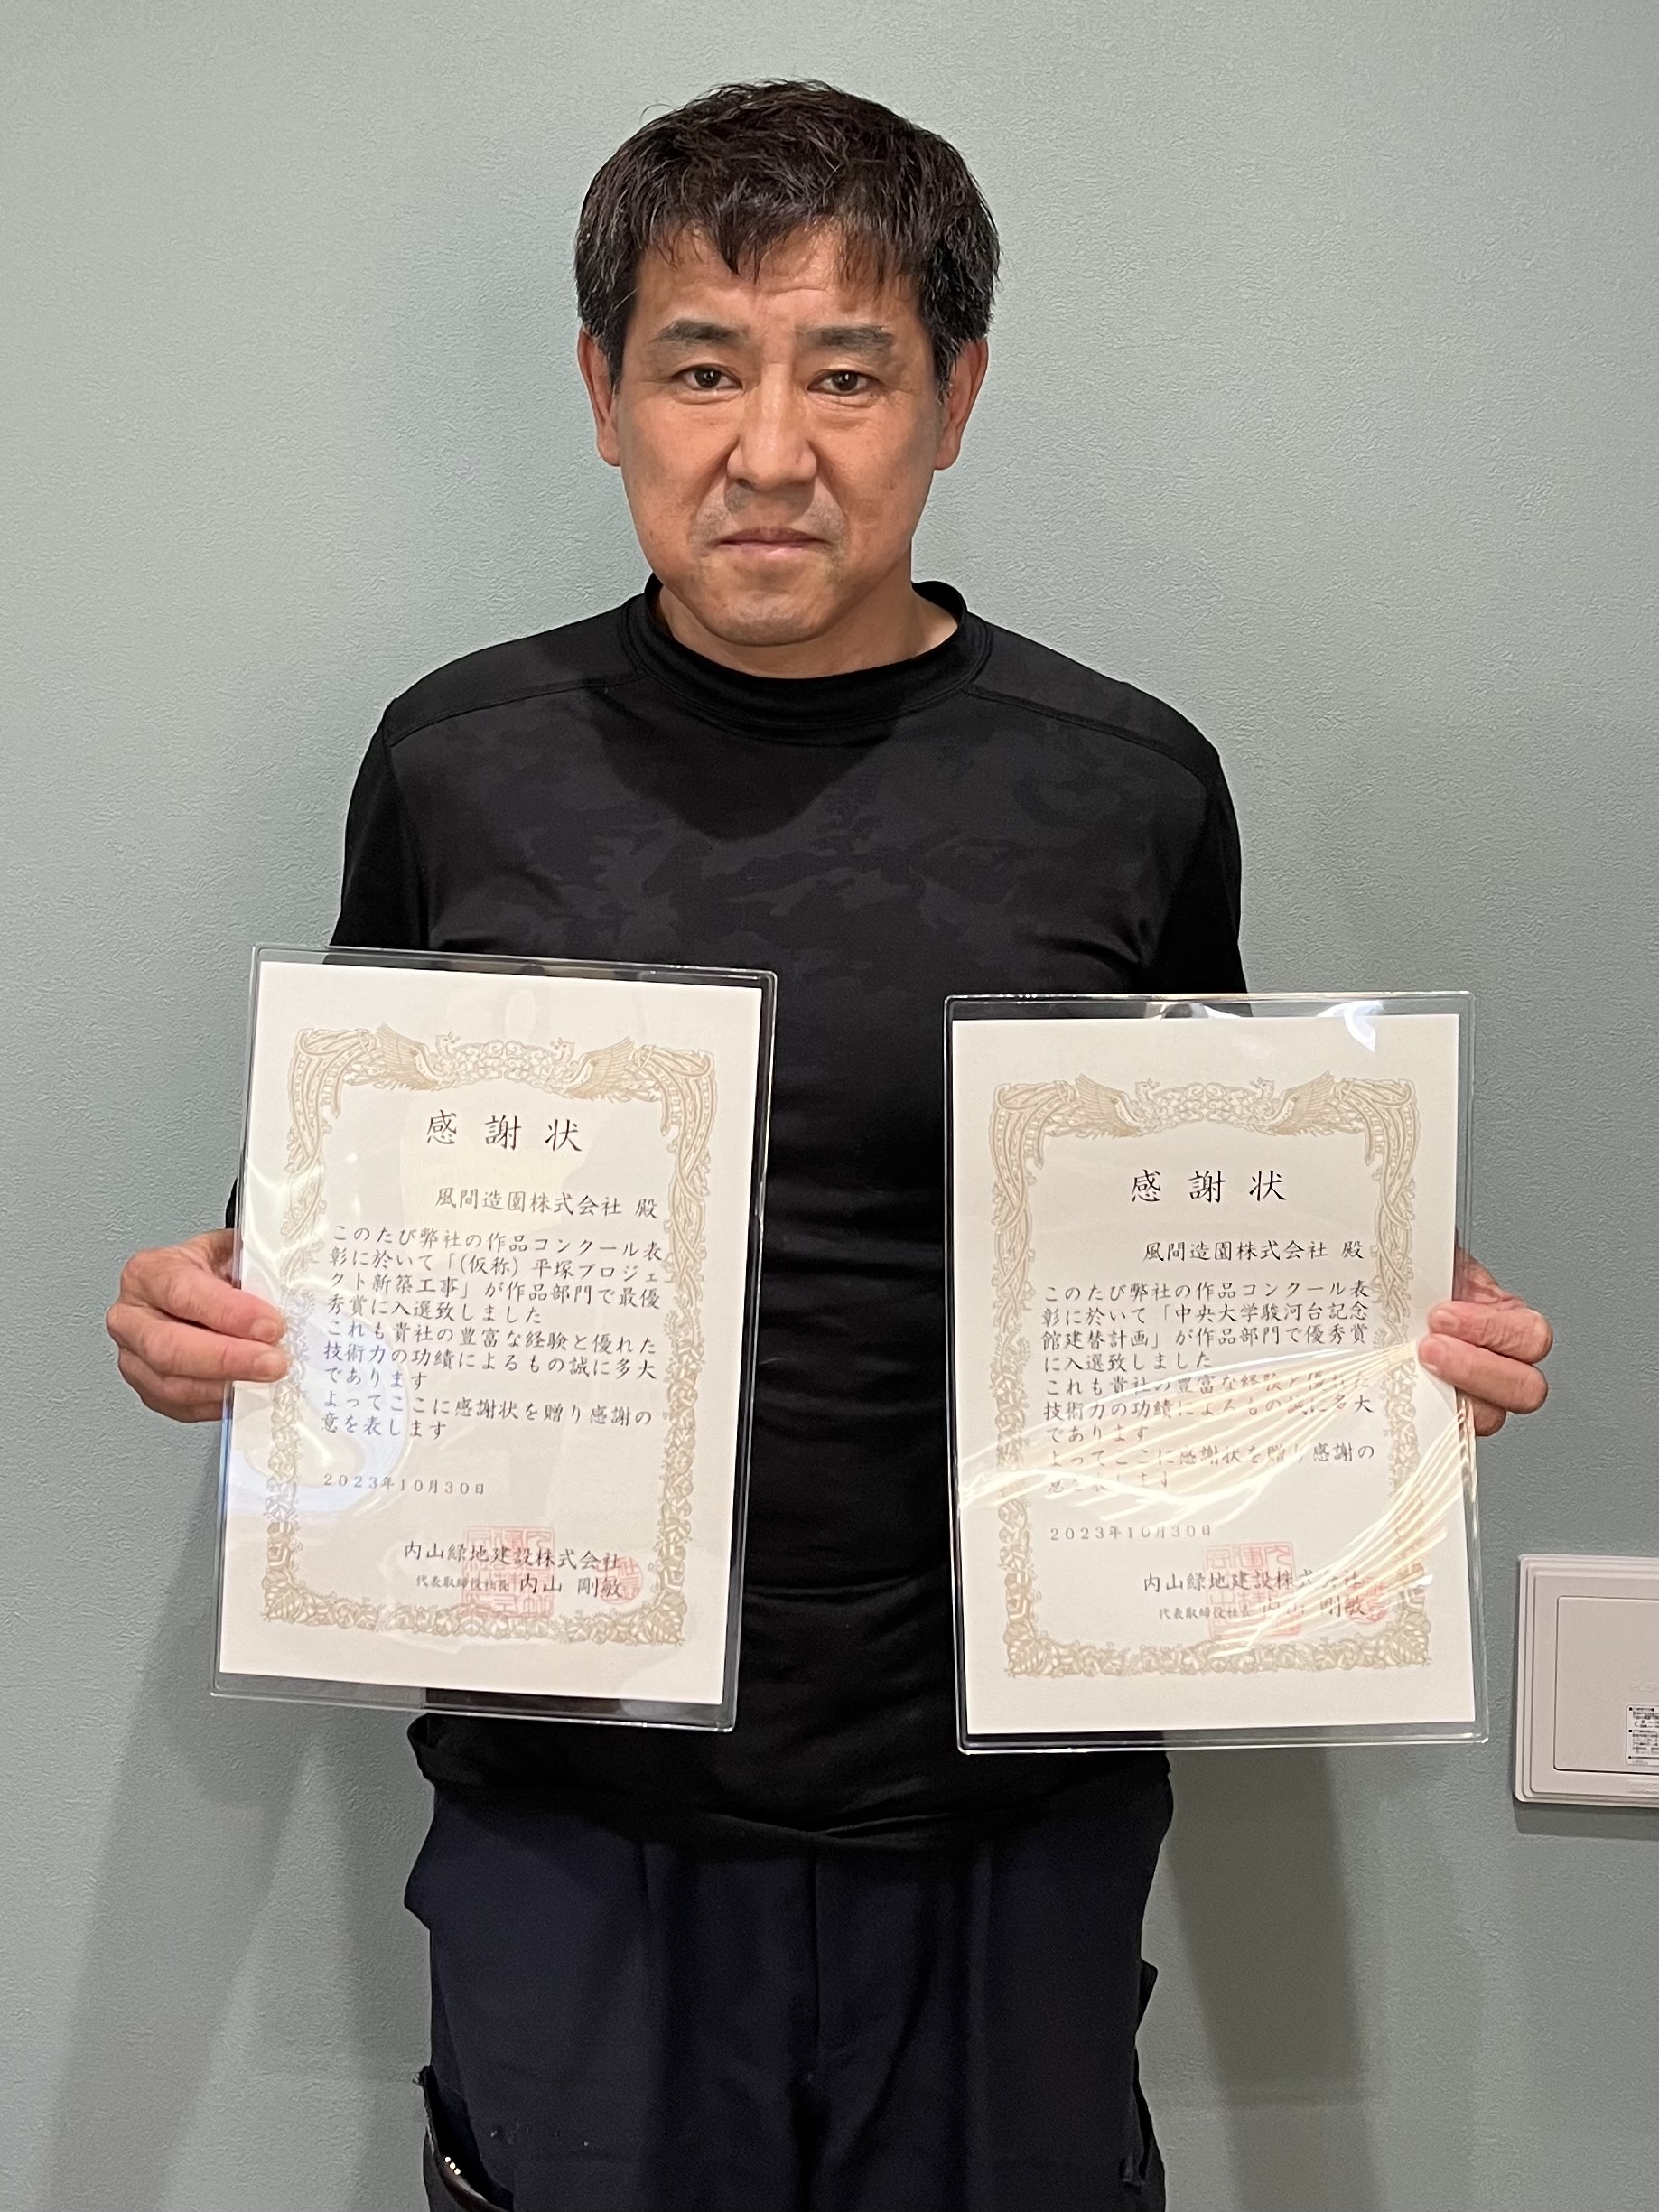 感謝状
風間造園株式会社 殿
このたび弊社の作品コンクール表
彰に於いて「(仮称)平塚プロジェ
クト新築工事」が作品部門で最優
秀賞に入選致しました
これも貴社の豊富な経験と優れた
技術力の功績によるもの誠に多大
であります
よってここに感謝状を贈り感謝の
意を表します
2023年10月30日
内山緑地建設株式会社
代表取締役社長 内山 剛敏
感謝状
風間造園株式会社 殿
このたび弊社の作品コンクール表
彰に於いて「中央大学駿河台記念
館建替計画」が作品部門で優秀賞
に入選致しました
これも貴社の豊富な経験と優れた
技術力の功績によるもの誠に多大
であります
よってここに感謝状を贈り感謝の
意を表します
2023年10月30日
内山緑地建設株式会社
代表取締役社長 内山 剛敏